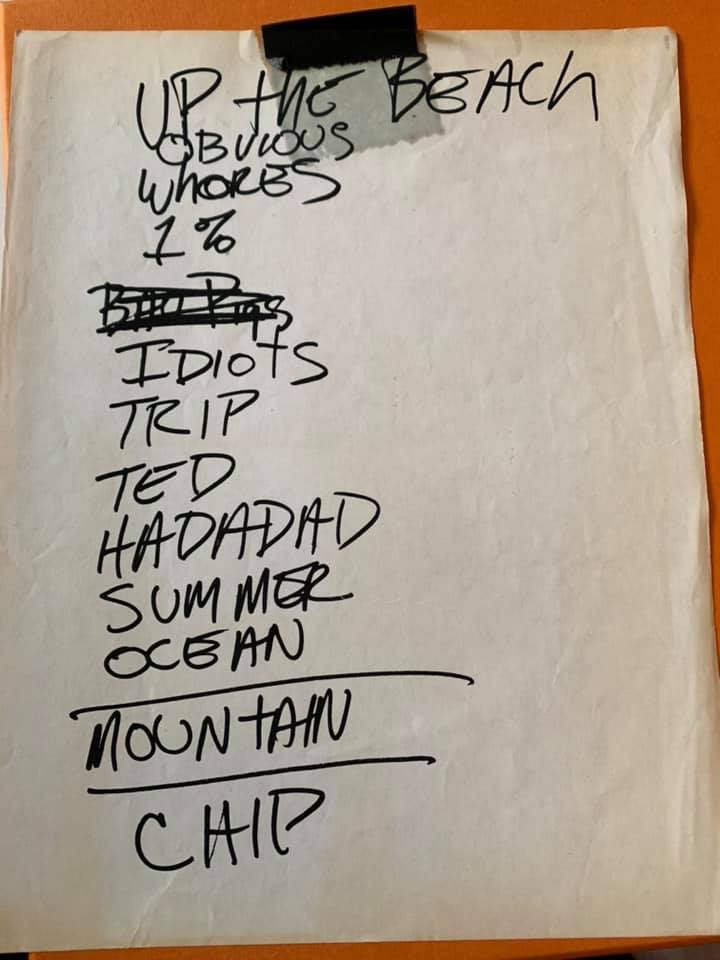 UP the BEACh
OBVIOUS
WhORES
1%
IDIOtS
TRIP
TED
HADADAD
SUMMER
OCEAN
MOUNtAIN
CHIP